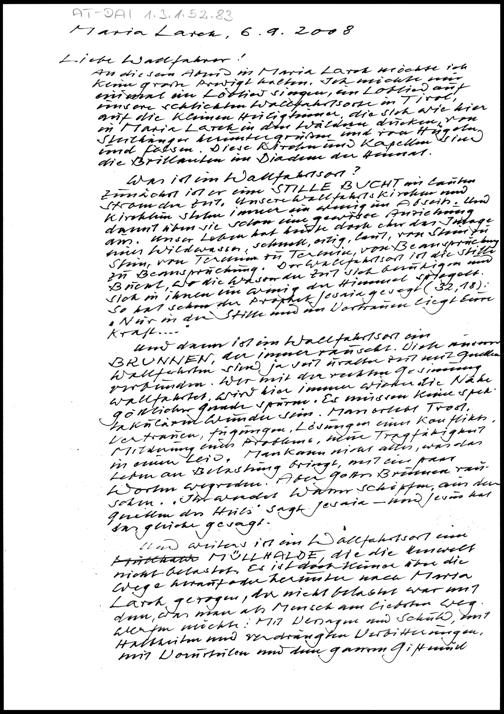 AT-DAI 1.3.1.52.83
Maria Larch, 6.9.2008
Liebe Wallfahrer!
An diesem Abend in Maria Larch möchte ich
keine große Predigt halten. Ich möchte nur
einmal ein Loblied singen, ein Loblied auf
unsere schlichten Wallfahrtsorte in Tirol,
auf die kleinen Heiligtümer, die sich wie hier
in Maria Larch in den Wäldern ducken, von
Steilhängen heruntergrüßen und von Hügeln
und Felsen. Diese Kirchen und Kapellen sind
die Brillanten im Diadem der Heimat.
Was ist ein Wallfahrtsort?
Zunächst ist er eine STILLE BUCHT im lauten
Strom der Zeit. Unsere Wallfahrtskirchen und
Kirchlein stehen immer ein wenig im Abseits. Und
damit üben sie schon eine gewisse Anziehung
aus. Unser Leben hat heute doch eher das Image
eines Wildwassers, schnell, eilig, laut, von Stein zu
Stein, von Termin zu Termin, von Beanspruchung
zu Beanspruchung. Der Wallfahrtsort ist die stille
Bucht, wo die Wasser der Zeit sich beruhigen und
sich in ihnen ein wenig der Himmel spiegelt.
So hat schon der Prophet Jesaia gesagt (32,18):
"Nur in der Stille und im Vertrauen liegt eure
Kraft...."
Und dann ist ein Wallfahrtsort ein
BRUNNEN, der immer rauscht. Viele unserer
Wallfahrten sind ja seit uralter Zeit mit Quellen
verbunden. Wer mit der rechten Gesinnung
wallfahrtet, wird hier immer wieder die Nähe
göttlicher Gnade spüren. Es müssen keine spek-
takulären Wunder sein. Man erlebt Trost,
Vertrauen, Fügungen, Lösungen eines Konflikts,
Milderung eines Problems, neue Tragfähigkeit
in einem Leid. Man kann nicht alles, was das
Leben an Belastung bringt, mit ein paar
Worten wegreden. Aber Gottes Brunnen rau-
schen. "Ihr werdet Wasser schöpfen, aus den
Quellen des Heils" sagt Jesaia – und Jesus hat
das gleiche gesagt.
Und weiters ist ein Wallfahrtsort eine
MÜLLHALDE, die die Umwelt
nicht belastet. Es ist doch keiner über die
Wege herauf oder herunter nach Maria
Larch gezogen, der nicht belastet war mit
dem, was man als Mensch am liebsten weg-
werfen möchte: Mit Versagen und Schuld, mit
Halbheiten und verdrängten Verbitterungen,
mit Vorurteilen und dem ganzen Gift und